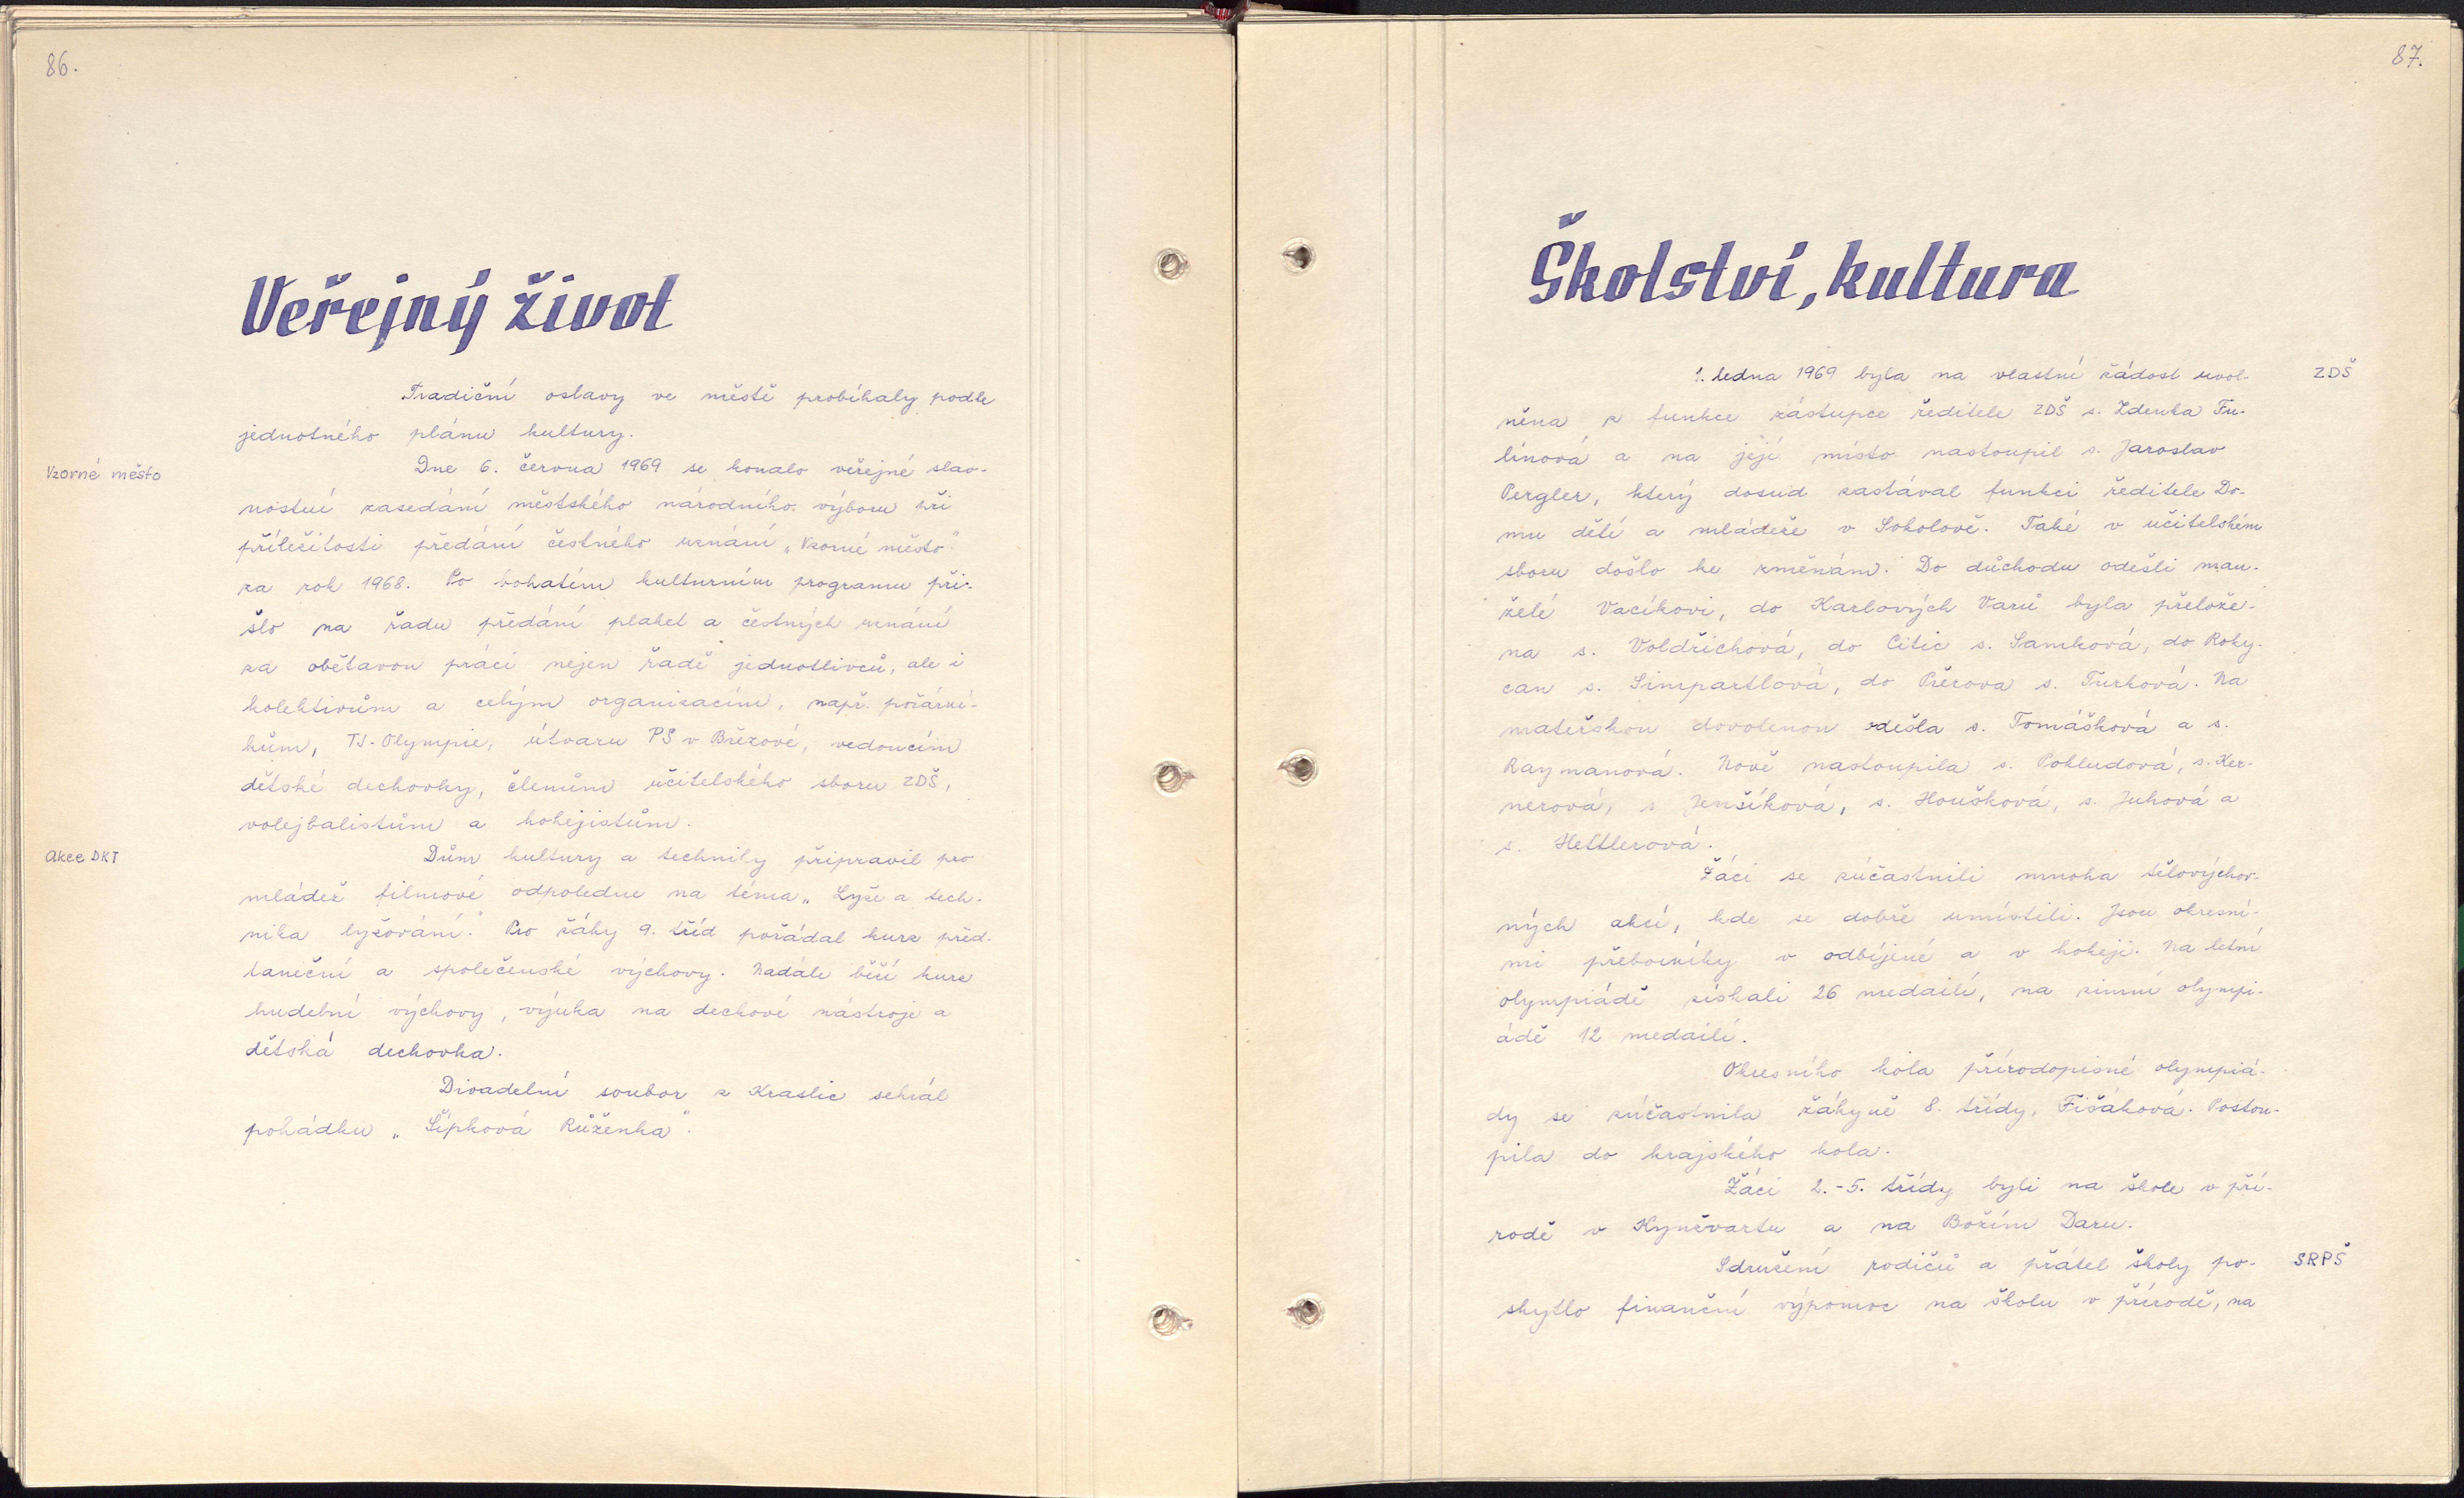 86.
Veřejný život
Tradiční oslavy ve městě probíhaly podle
jednotného plánu kultury.
Vzorné město
Dne 6. června 1969 se konalo veřejné slav-
nostní zasedání městského národního výboru při
příležitosti předání čestného uznání „Vzorné město"
za rok 1968. Po bohatém kulturním programu při-
šlo na řadu předání plaket a čestných uznání
za obětavou práci nejen řadě jednotlivců, ale i
kolektivům a celým organizacím, např. požární-
kům, TJ-Olympie, útvaru PS v Březové, vedoucím
dětské dechovky, členům učitelského sboru ZDŠ,
volejbalistům a hokejistům.
Akce DKT
Dům kultury a techniky připravil pro
mládež filmové odpoledne na téma „Lyže a tech-
nika lyžování." Pro žáky 9. tříd pořádal kurz před-
taneční a společenské výchovy. Nadále běží kurz
hudební výchovy, výuka na dechové nástroje a
dětská dechovka.
Divadelní soubor z Kraslic sehrál
pohádku „Šípková Růženka".
87.
Školství, kultura
1. ledna 1969 byla na vlastní žádost uvol-
ZDŠ
něna z funkce zástupce ředitele ZDŠ s. Zdenka Fu-
línová a na její místo nastoupil s. Jaroslav
Pergler, který dosud zastával funkci ředitele Do-
mu dětí a mládeže v Sokolově. Také v učitelském
sboru došlo ke změnám. Do důchodu odešli man-
želé Vacíkovi, do Karlových Varů byla přelože-
na s. Voldřichová, do Citic s. Samková, do Roky-
can s. Simpartlová, do Přerova s. Turková. Na
mateřskou dovolenou odešla s. Tomášková a s.
Raymanová. Nově nastoupila s. Pohludová, s. Ker-
nerová, s Jenšíková, s. Houšková, s. Juhová a
s. Hettlerová.
Žáci se zúčastnili mnoha tělovýchov-
ných akcí, kde se dobře umístili. Jsou okresní-
mi přeborníky v odbíjené a v hokeji. Na letní
olympiádě získali 26 medailí, na zimní olympi-
ádě 12 medailí.
Okresního kola přírodopisné olympiá-
dy se zúčastnila žákyně 8. třídy, Fišáková. Postou-
pila do krajského kola.
Žáci 2.-5. třídy byli na škole v pří-
rodě v Kynžvartu a na Božím Daru.
Sdružení rodičů a přátel školy po-
SRPŠ
skytlo finanční výpomoc na školu v přírodě, na